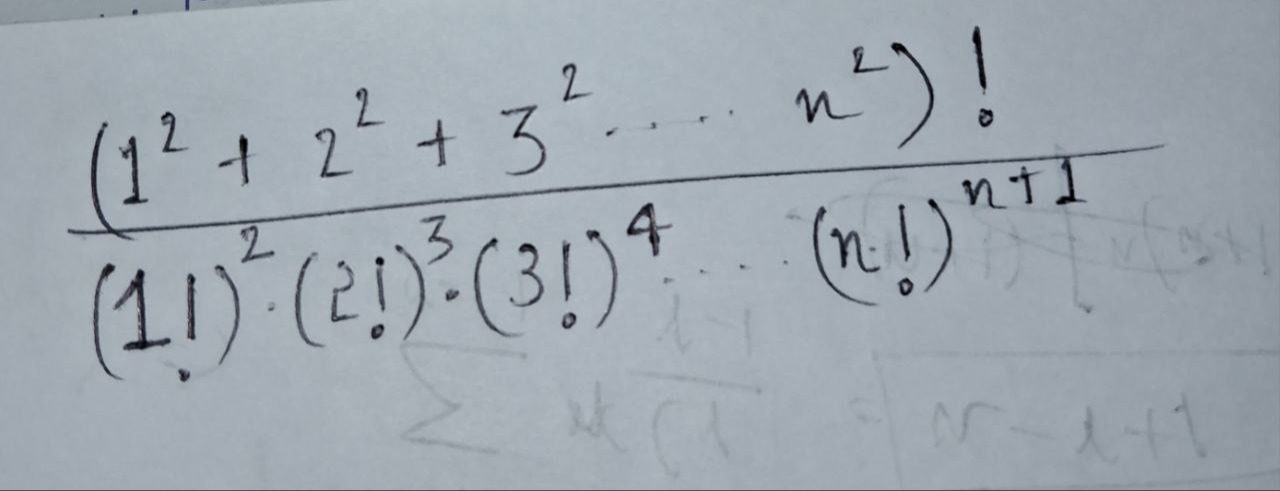 (1² + 2² + 3² ..... n²)!
(1!)² · (2!)³ · (3!)⁴ ..... (n!)ⁿ⁺¹